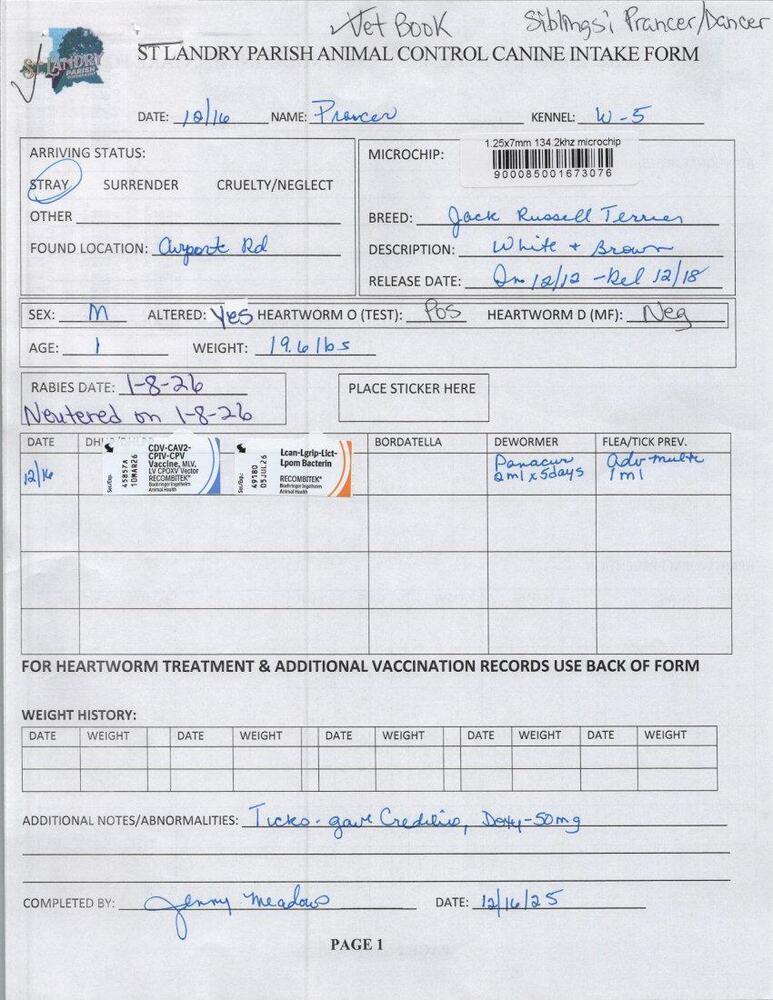 Vet Book
Siblings; Prancer/Dancer
ST LANDRY PARISH
ST LANDRY PARISH ANIMAL CONTROL CANINE INTAKE FORM
DATE: 12/16 NAME: Prancer KENNEL: W-5
ARRIVING STATUS:
STRAY SURRENDER CRUELTY/NEGLECT
OTHER
FOUND LOCATION: Airport Rd
MICROCHIP: 1.25x7mm 134.2khz microchip
900085001673076
BREED: Jack Russell Terrier
DESCRIPTION: White + Brown
RELEASE DATE: In 12/12 - Rel 12/18
SEX: M ALTERED: Yes HEARTWORM O (TEST): Pos HEARTWORM D (MF): Neg
AGE: 1 WEIGHT: 19.6 lbs
RABIES DATE: 1-8-26
Neutered on 1-8-26
PLACE STICKER HERE
DATE BORDATELLA DEWORMER FLEA/TICK PREV.
12/16
CDV-CAV2-
CPIV-CPV
Vaccine, MLV,
LV CPOXV Vector
RECOMBITEK
Boehringer Ingelheim
Animal Health
45857A
10MAR26
Lcan-Lgrip-Lict-
Lpom Bacterin
RECOMBITEK
Boehringer Ingelheim
Animal Health
49180
05JUL26
Panacur
2ml x 5days
adv multi
1 ml
FOR HEARTWORM TREATMENT & ADDITIONAL VACCINATION RECORDS USE BACK OF FORM
WEIGHT HISTORY:
DATE WEIGHT DATE WEIGHT DATE WEIGHT DATE WEIGHT DATE WEIGHT
ADDITIONAL NOTES/ABNORMALITIES: Ticks - gave Credelio, Doxy-50mg
COMPLETED BY: Jenny Meadows DATE: 12/16/25
PAGE 1